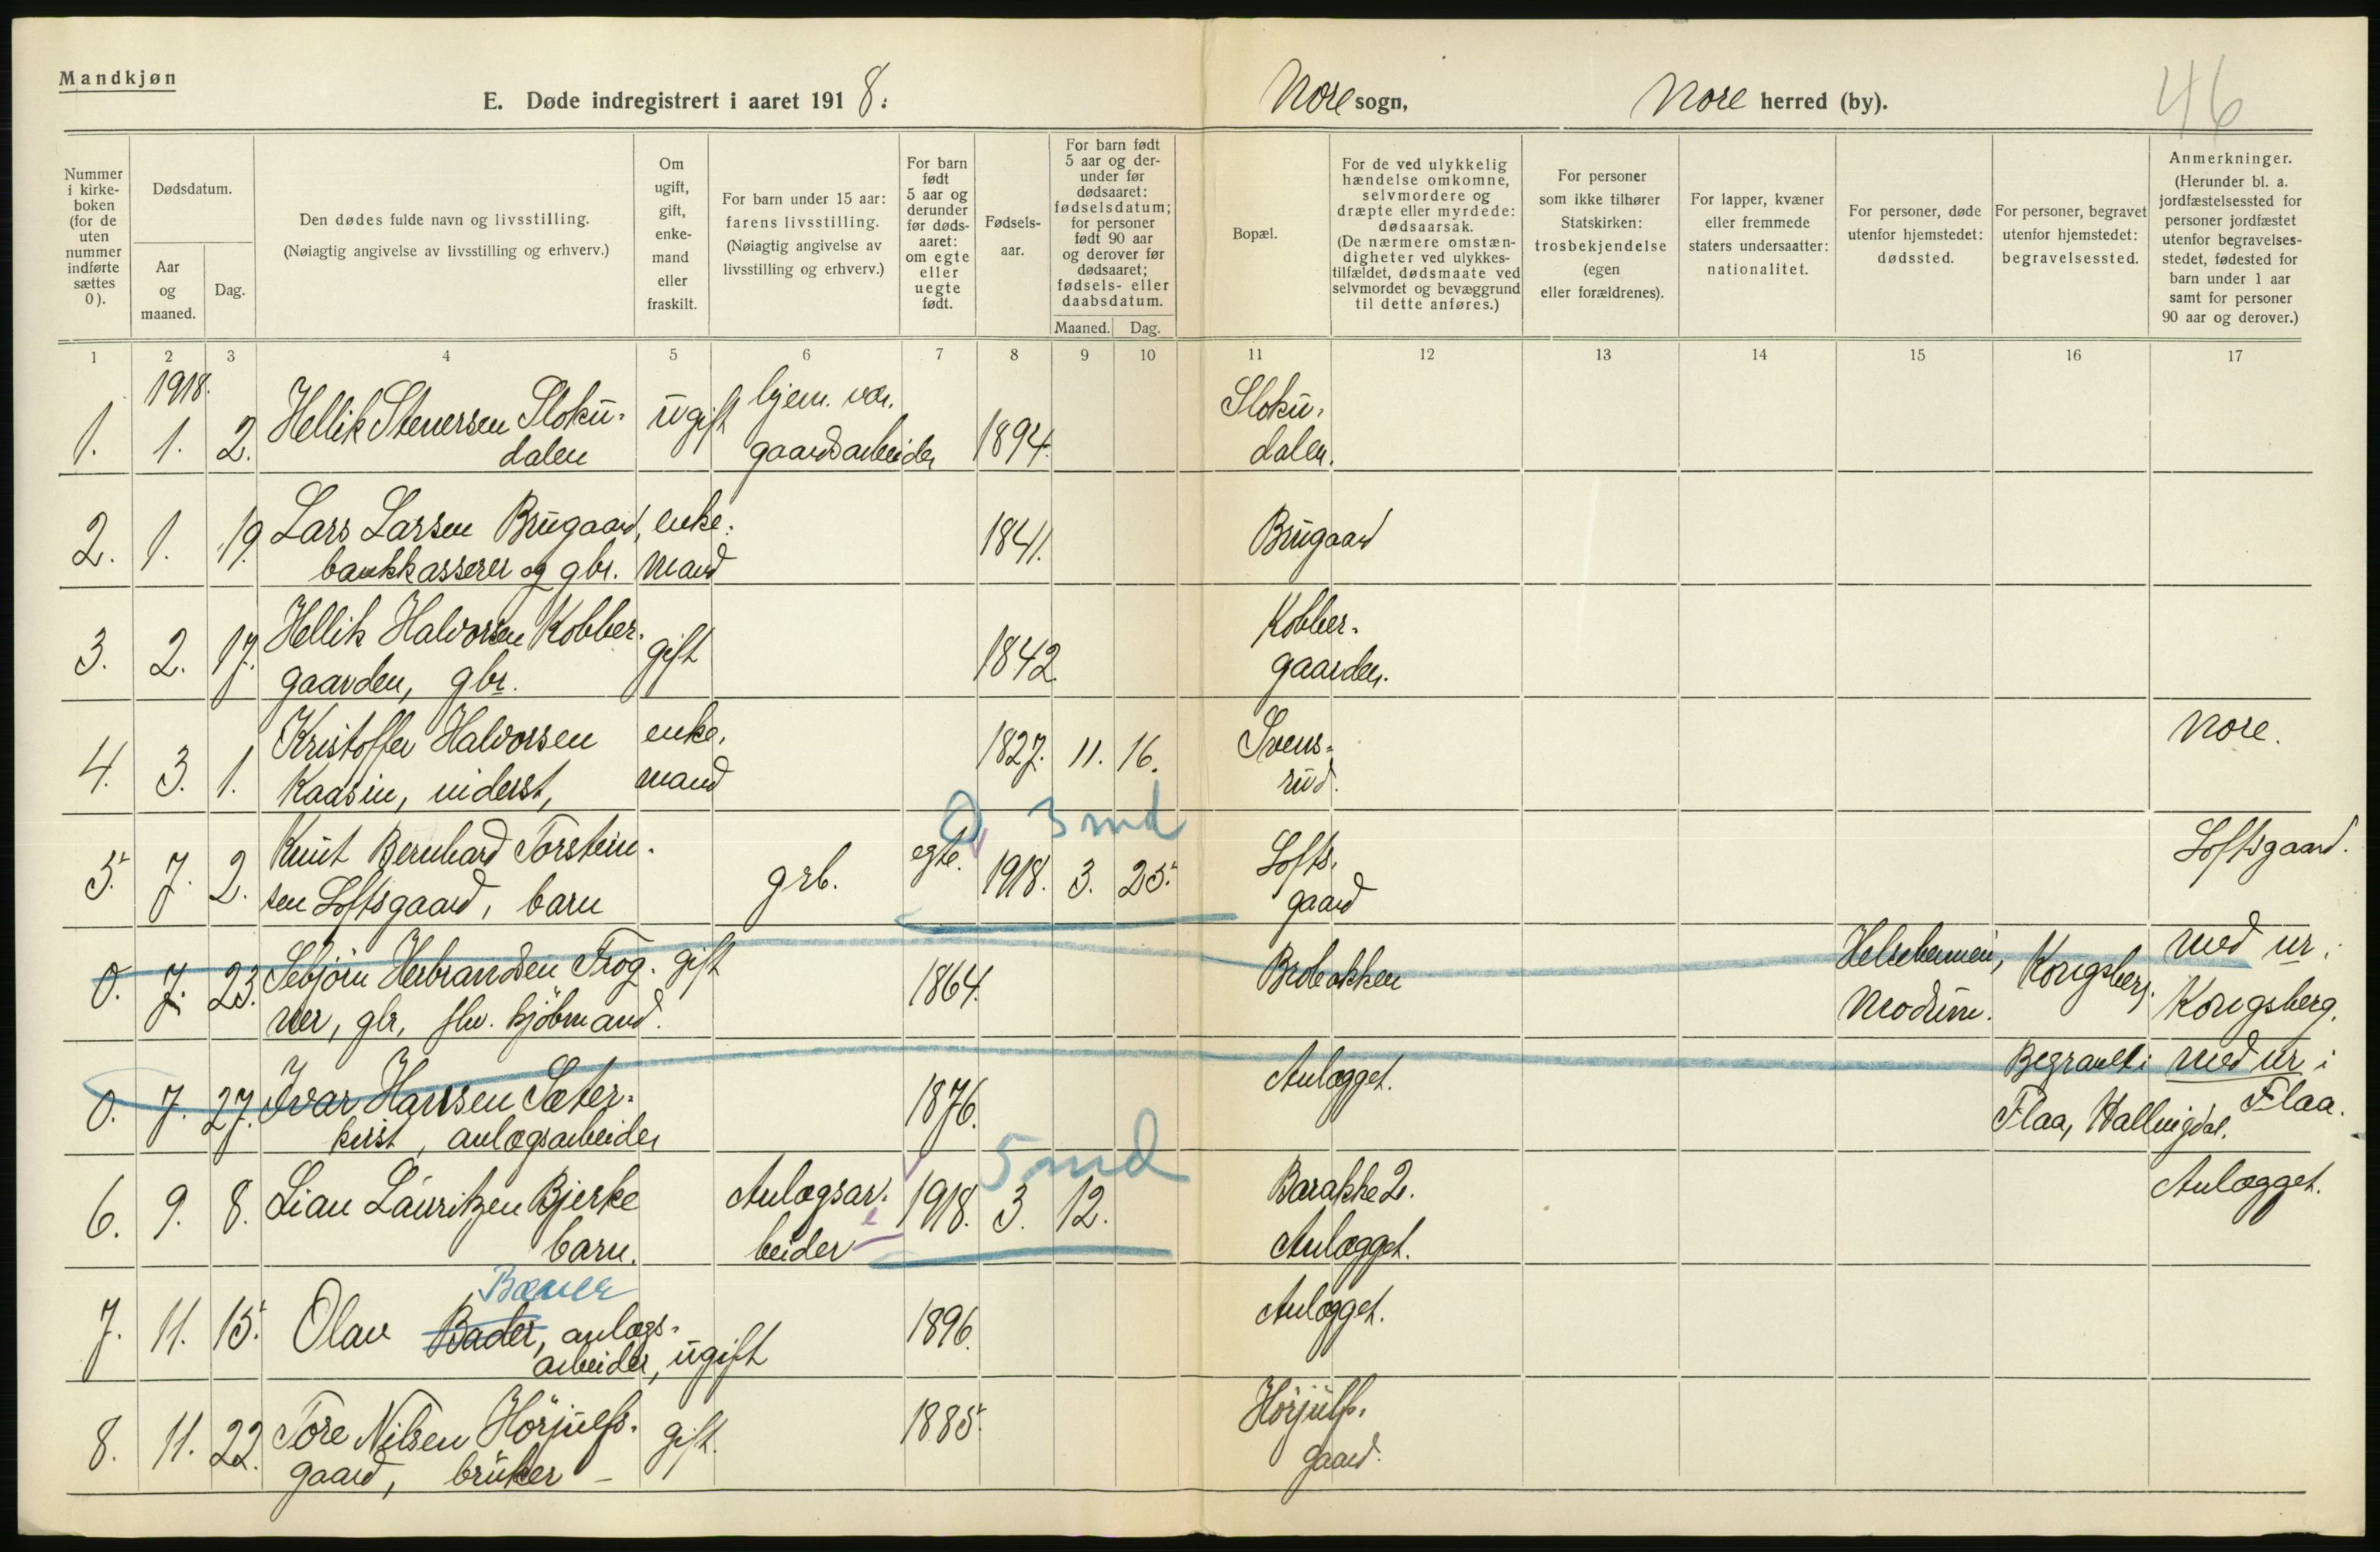 Mandkjøn
E. Døde indregistrert i aaret 1918.
Nore sogn, Nore herred (by).
46
Nummer i kirke-boken (for de uten nummer indførte sættes 0).
Dødsdatum.
Aar og maaned.
Dag.
Den dødes fulde navn og livsstilling.
(Nøiagtig angivelse av livsstilling og erhverv.)
Om ugift, gift, enke-mand eller fraskilt.
For barn under 15 aar: farens livsstilling.
(Nøiagtig angivelse av livsstilling og erhverv.)
For barn født 5 aar og derunder før døds-aaret: om egte eller uegte født.
Fødsels-aar.
For barn født 5 aar og der-under før dødsaaret: fødselsdatum; for personer født 90 aar og derover før dødsaaret; fødsels- eller daabsdatum.
Maaned. Dag.
Bopæl.
For de ved ulykkelig hændelse omkomne, selvmordere og dræpte eller myrdede: dødsaarsak.
(De nærmere omstæn-digheter ved ulykkes-tilfældet, dødsmaate ved selvmordet og bevæggrund til dette anføres.)
For personer som ikke tilhører Statskirken: trosbekjendelse (egen eller forældrenes).
For lapper, kvæner eller fremmede staters undersaatter: nationalitet.
For personer, døde utenfor hjemstedet: dødssted.
For personer, begravet utenfor hjemstedet: begravelsessted.
Anmerkninger.
(Herunder bl. a. jordfæstelsessted for personer jordfæstet utenfor begravelses-stedet, fødested for barn under 1 aar samt for personer 90 aar og derover.)
1 2 3 4 5 6 7 8 9 10 11 12 13 14 15 16 17
1918.
1. 1. 2. Hellik Stenersen Sloku- ugift hjem. vær. 1894. Sloku-
dalen gaardsarbeider dalen.
2. 1. 19. Lars Larsen Brugaard, enke- 1841. Brugaard
bankkasserer og gbr. mand
3. 2. 17. Hellik Halvorsen Kobber- gift 1842. Kobber-
gaarden, gbr. gaarden.
4. 3. 1. Kristoffer Halvorsen enke- 1827. 11. 16. Svens- Nore.
Kaasin, inderst, mand rud.
0 3 md
5. 7. 2. Knut Bernhard Torstein- grb. egte. 1918. 3. 25. Lofts- Loftsgaard.
sen Loftsgaard, barn gaard
0. 7. 23. Sebjörn Herbrandsen Frog- gift 1864. Brobakken Kongsberg. med ur i
ner, gbr, fhv. kjöbmand. Modum. Kongsberg.
0. 7. 27. Ivar Hansen Sæter- 1876. Anlægget. Begravet i med ur i
kvist, anlægsarbeider Flaa, Hallingdal. Flaa.
5 md
6. 9. 8. Lian Lauritzen Bjerke Anlægsar- e 1918. 3. 12. Barakke 2. Anlægget.
barn. beider Anlægget.
7. 11. 15. Olav Bader, anlægs- 1896. Anlægget.
arbeider, ugift
8. 11. 22. Tore Nilsen Hörjulfs- gift. 1885. Hörjulfs-
gaard, bruker – gaard.